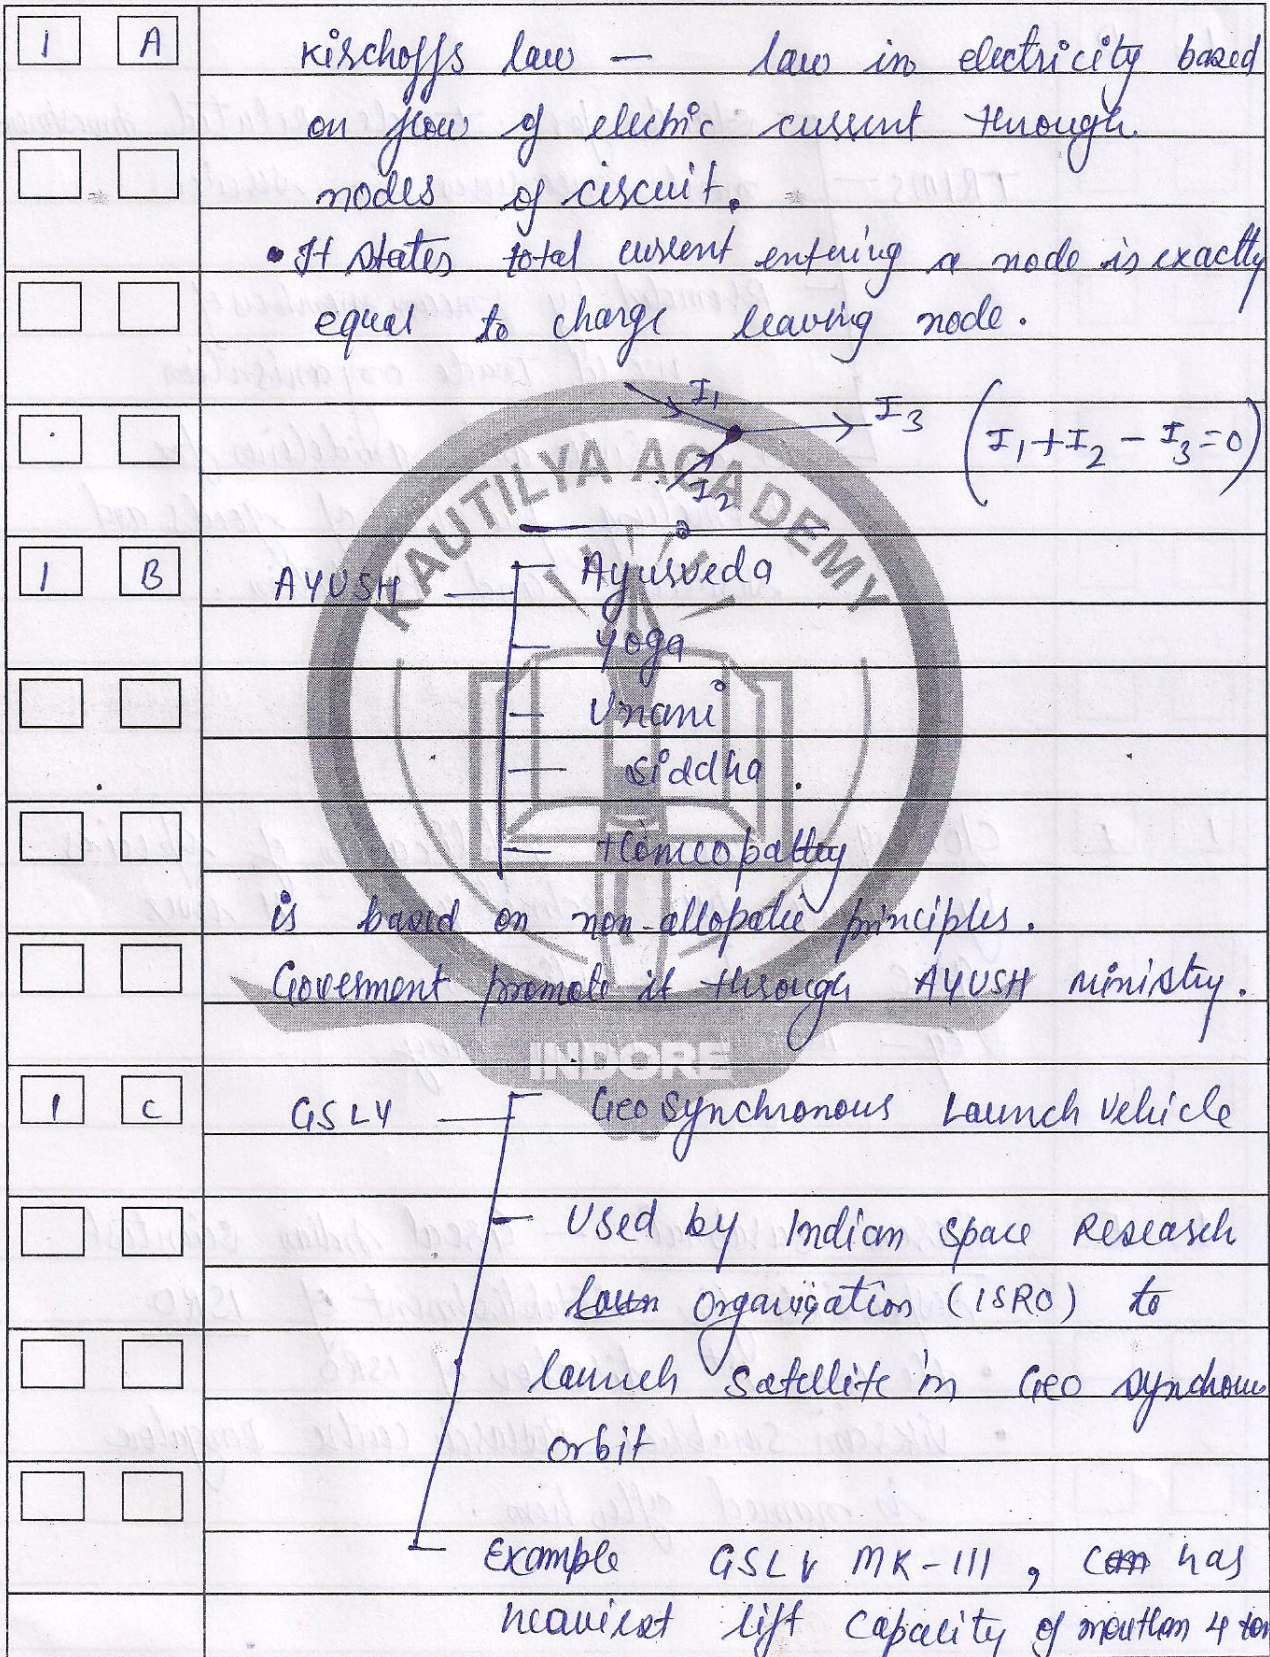 1 A Kirchoffs law — law in electricity based
on flow of electric current through
nodes of circuit.
• It states total current entering a node is exactly
equal to charge leaving node.
I₁
I₃ (I₁+I₂ - I₃=0)
I₂
KAUTILYA ACADEMY
1 B AYUSH — Ayurveda
— Yoga
— Unani
— Siddha
— Homeopathy
is based on non-allopatic principles.
Goverment promote it through AYUSH ministry.
INDORE
1 C GSLV — Geo Synchronous Launch Vehicle
— Used by Indian Space Research
Organisation (ISRO) to
launch satellite in Geo
orbit
— Example GSLV MK-III, has
heaviest lift capacity of 4 ton